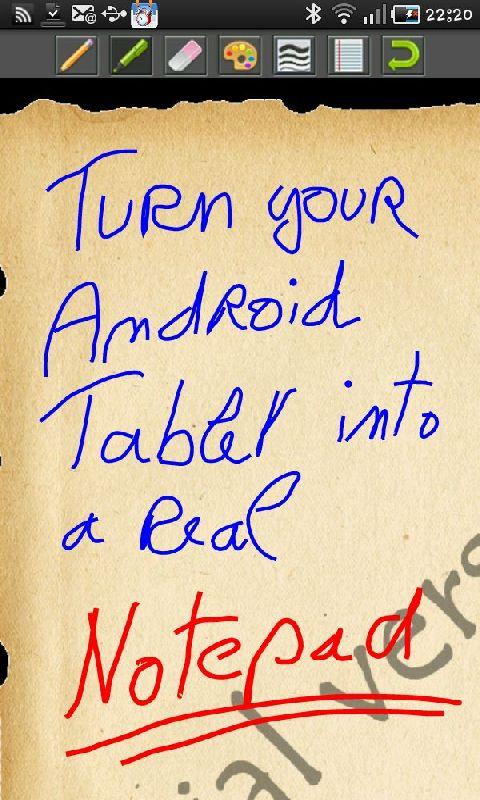 22:20
Turn your
Android
Tablet into
a Real
Notepad